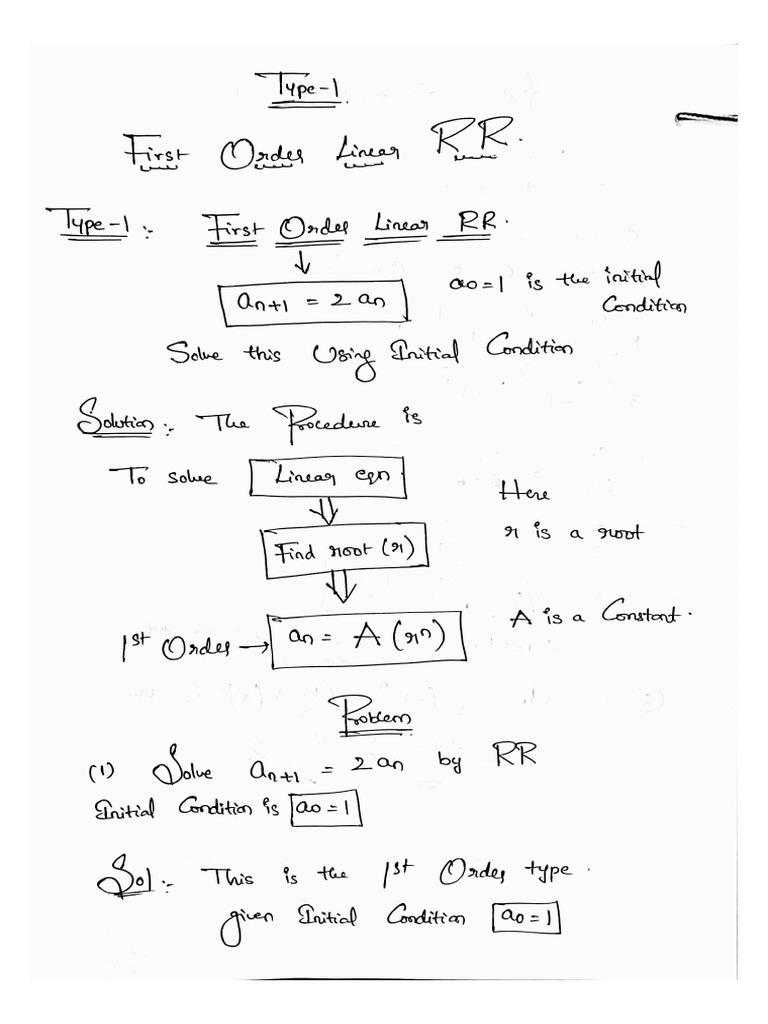 Type-1.
First Order Linear RR.
Type-1:- First Order Linear RR.
↓
an+1 = 2 an
a0=1 is the initial
Condition
Solve this Using Initial Condition
Solution:- The Procedure is
To solve Linear eqn
⇓
Find root (r)
Here
r is a root
⇓
1st Order → an = A (rn)
A is a Constant.
Problem
(1) Solve an+1 = 2an by RR
Initial Condition is a0=1
Sol:- This is the 1st Order type.
given Initial Condition a0=1